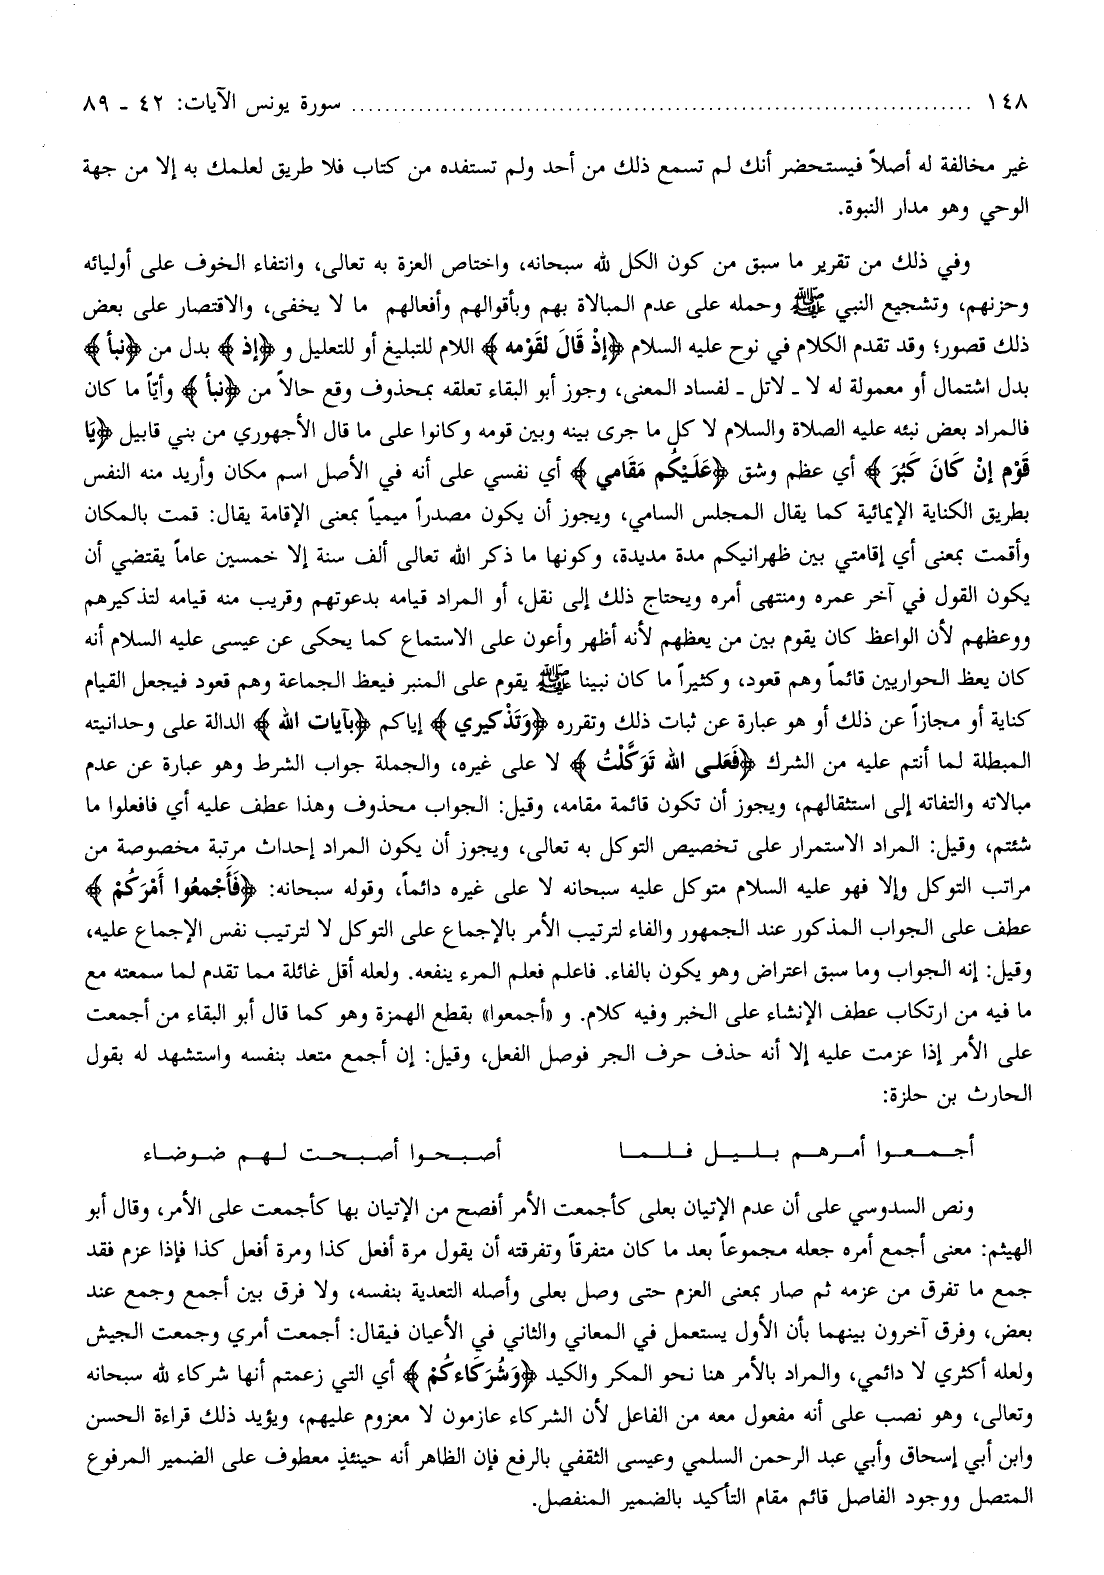 ١٤٨ ........................................................................... سورة يونس الآيات: ٤٢ ـ ٨٩
غير مخالفة له أصلاً فيستحضر أنك لم تسمع ذلك من أحد ولم تستفده من كتاب فلا طريق لعلمك به إلا من جهة
الوحي وهو مدار النبوة.
وفي ذلك من تقرير ما سبق من كون الكل لله سبحانه، واختاص العزة به تعالى، وانتفاء الخوف على أوليائه
وحزنهم، وتشجيع النبي ﷺ وحمله على عدم المبالاة بهم وبأقوالهم وأفعالهم ما لا يخفى، والاقتصار على بعض
ذلك قصور؛ وقد تقدم الكلام في نوح عليه السلام ﴿إِذْ قَالَ لقَوْمه﴾ اللام للتبليغ أو للتعليل و ﴿إذ﴾ بدل من ﴿نبأ﴾
بدل اشتمال أو معمولة له لا ـ لاتل ـ لفساد المعنى، وجوز أبو البقاء تعلقه بمحذوف وقع حالاً من ﴿نبأ﴾ وأيّاً ما كان
فالمراد بعض نبئه عليه الصلاة والسلام لا كل ما جرى بينه وبين قومه وكانوا على ما قال الأجهوري من بني قابيل ﴿يَا
قَوْم إنْ كَانَ كَبُرَ﴾ أي عظم وشق ﴿عَلَيْكُم مَقَامي﴾ أي نفسي على أنه في الأصل اسم مكان وأريد منه النفس
بطريق الكناية الإيمائية كما يقال المجلس السامي، ويجوز أن يكون مصدراً ميمياً بمعنى الإقامة يقال: قمت بالمكان
وأقمت بمعنى أي إقامتي بين ظهرانيكم مدة مديدة، وكونها ما ذكر الله تعالى ألف سنة إلا خمسين عاماً يقتضي أن
يكون القول في آخر عمره ومنتهى أمره ويحتاج ذلك إلى نقل، أو المراد قيامه بدعوتهم وقريب منه قيامه لتذكيرهم
ووعظهم لأن الواعظ كان يقوم بين من يعظهم لأنه أظهر وأعون على الاستماع كما يحكى عن عيسى عليه السلام أنه
كان يعظ الحواريين قائماً وهم قعود، وكثيراً ما كان نبينا ﷺ يقوم على المنبر فيعظ الجماعة وهم قعود فيجعل القيام
كناية أو مجازاً عن ذلك أو هو عبارة عن ثبات ذلك وتقرره ﴿وَتَذْكيري﴾ إياكم ﴿بآيات الله﴾ الدالة على وحدانيته
المبطلة لما أنتم عليه من الشرك ﴿فَعَلى الله تَوَكَّلْتُ﴾ لا على غيره، والجملة جواب الشرط وهو عبارة عن عدم
مبالاته والتفاته إلى استثقالهم، ويجوز أن تكون قائمة مقامه، وقيل: الجواب محذوف وهذا عطف عليه أي فافعلوا ما
شئتم، وقيل: المراد الاستمرار على تخصيص التوكل به تعالى، ويجوز أن يكون المراد إحداث مرتبة مخصوصة من
مراتب التوكل وإلا فهو عليه السلام متوكل عليه سبحانه لا على غيره دائماً، وقوله سبحانه: ﴿فَأَجْمعُوا أَمْرَكُمْ﴾
عطف على الجواب المذكور عند الجمهور والفاء لترتيب الأمر بالإجماع على التوكل لا لترتيب نفس الإجماع عليه،
وقيل: إنه الجواب وما سبق اعتراض وهو يكون بالفاء. فاعلم فعلم المرء ينفعه. ولعله أقل غائلة مما تقدم لما سمعته مع
ما فيه من ارتكاب عطف الإنشاء على الخبر وفيه كلام. و «أجمعوا» بقطع الهمزة وهو كما قال أبو البقاء من أجمعت
على الأمر إذا عزمت عليه إلا أنه حذف حرف الجر فوصل الفعل، وقيل: إن أجمع متعد بنفسه واستشهد له بقول
الحارث بن حلزة:
أجـمـعـوا أمـرهـم بـلـيـل فـلـمـا أصـبـحـوا أصـبـحـت لـهـم ضـوضـاء
ونص السدوسي على أن عدم الإتيان بعلى كأجمعت الأمر أفصح من الإتيان بها كأجمعت على الأمر، وقال أبو
الهيثم: معنى أجمع أمره جعله مجموعاً بعد ما كان متفرقاً وتفرقته أن يقول مرة أفعل كذا ومرة أفعل كذا فإذا عزم فقد
جمع ما تفرق من عزمه ثم صار بمعنى العزم حتى وصل بعلى وأصله التعدية بنفسه، ولا فرق بين أجمع وجمع عند
بعض، وفرق آخرون بينهما بأن الأول يستعمل في المعاني والثاني في الأعيان فيقال: أجمعت أمري وجمعت الجيش
ولعله أكثري لا دائمي، والمراد بالأمر هنا نحو المكر والكيد ﴿وَشُرَكَاءكُمْ﴾ أي التي زعمتم أنها شركاء لله سبحانه
وتعالى، وهو نصب على أنه مفعول معه من الفاعل لأن الشركاء عازمون لا معزوم عليهم، ويؤيد ذلك قراءة الحسن
وابن أبي إسحاق وأبي عبد الرحمن السلمي وعيسى الثقفي بالرفع فإن الظاهر أنه حينئذٍ معطوف على الضمير المرفوع
المتصل ووجود الفاصل قائم مقام التأكيد بالضمير المنفصل.